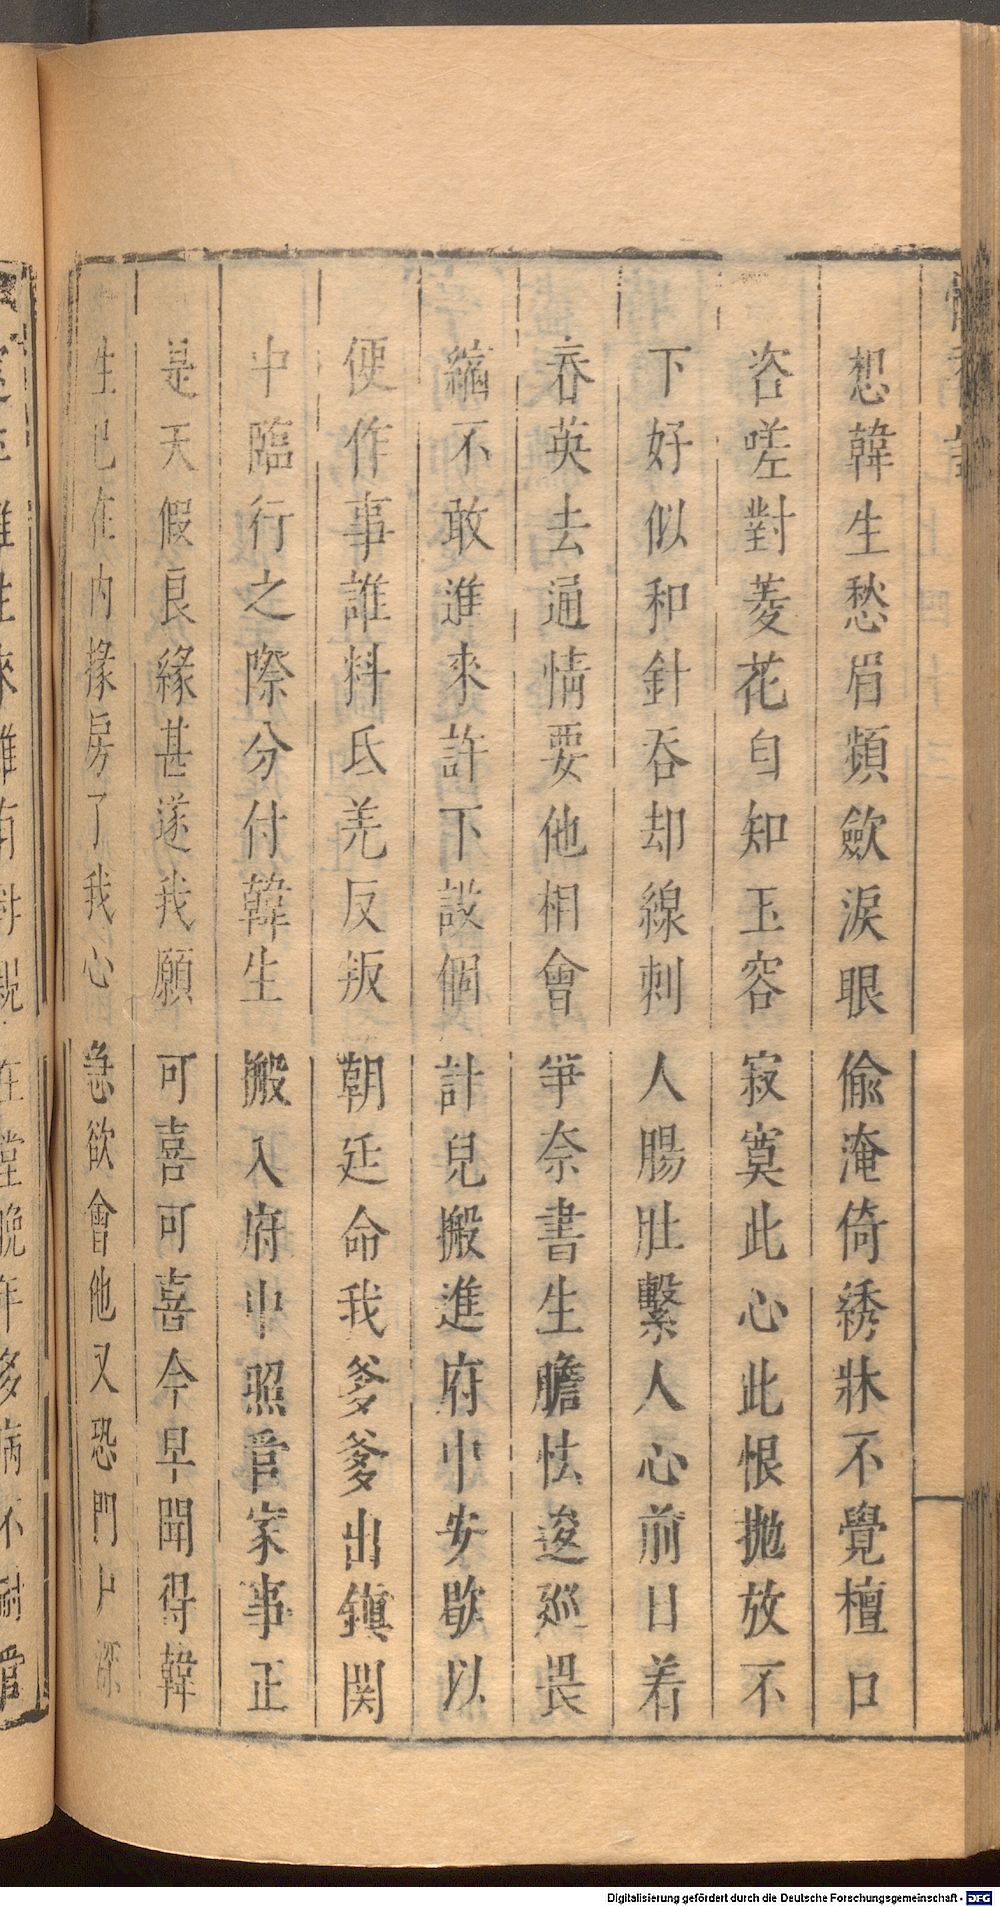 想韓生愁眉頻歛淚眼偷淹倚綉牀不覺檀口
咨嗟對菱花自知玉容寂寞此心此恨拋放不
下好似和針吞却線刺人腸肚繫人心前日着
春英去通情要他相會爭奈書生膽怯逡巡畏
縮不敢進來許下設個計兒搬進府中安歇以
便作事誰料氐羌反叛朝廷命我爹爹出鎮関
中臨行之際分付韓生搬入府中照管家事正
是天假良緣甚遂我願可喜可喜今早聞得韓
生已在内掾房了我心急欲會他又恐門户深
Digitalisierung gefördert durch die Deutsche Forschungsgemeinschaft - DFG